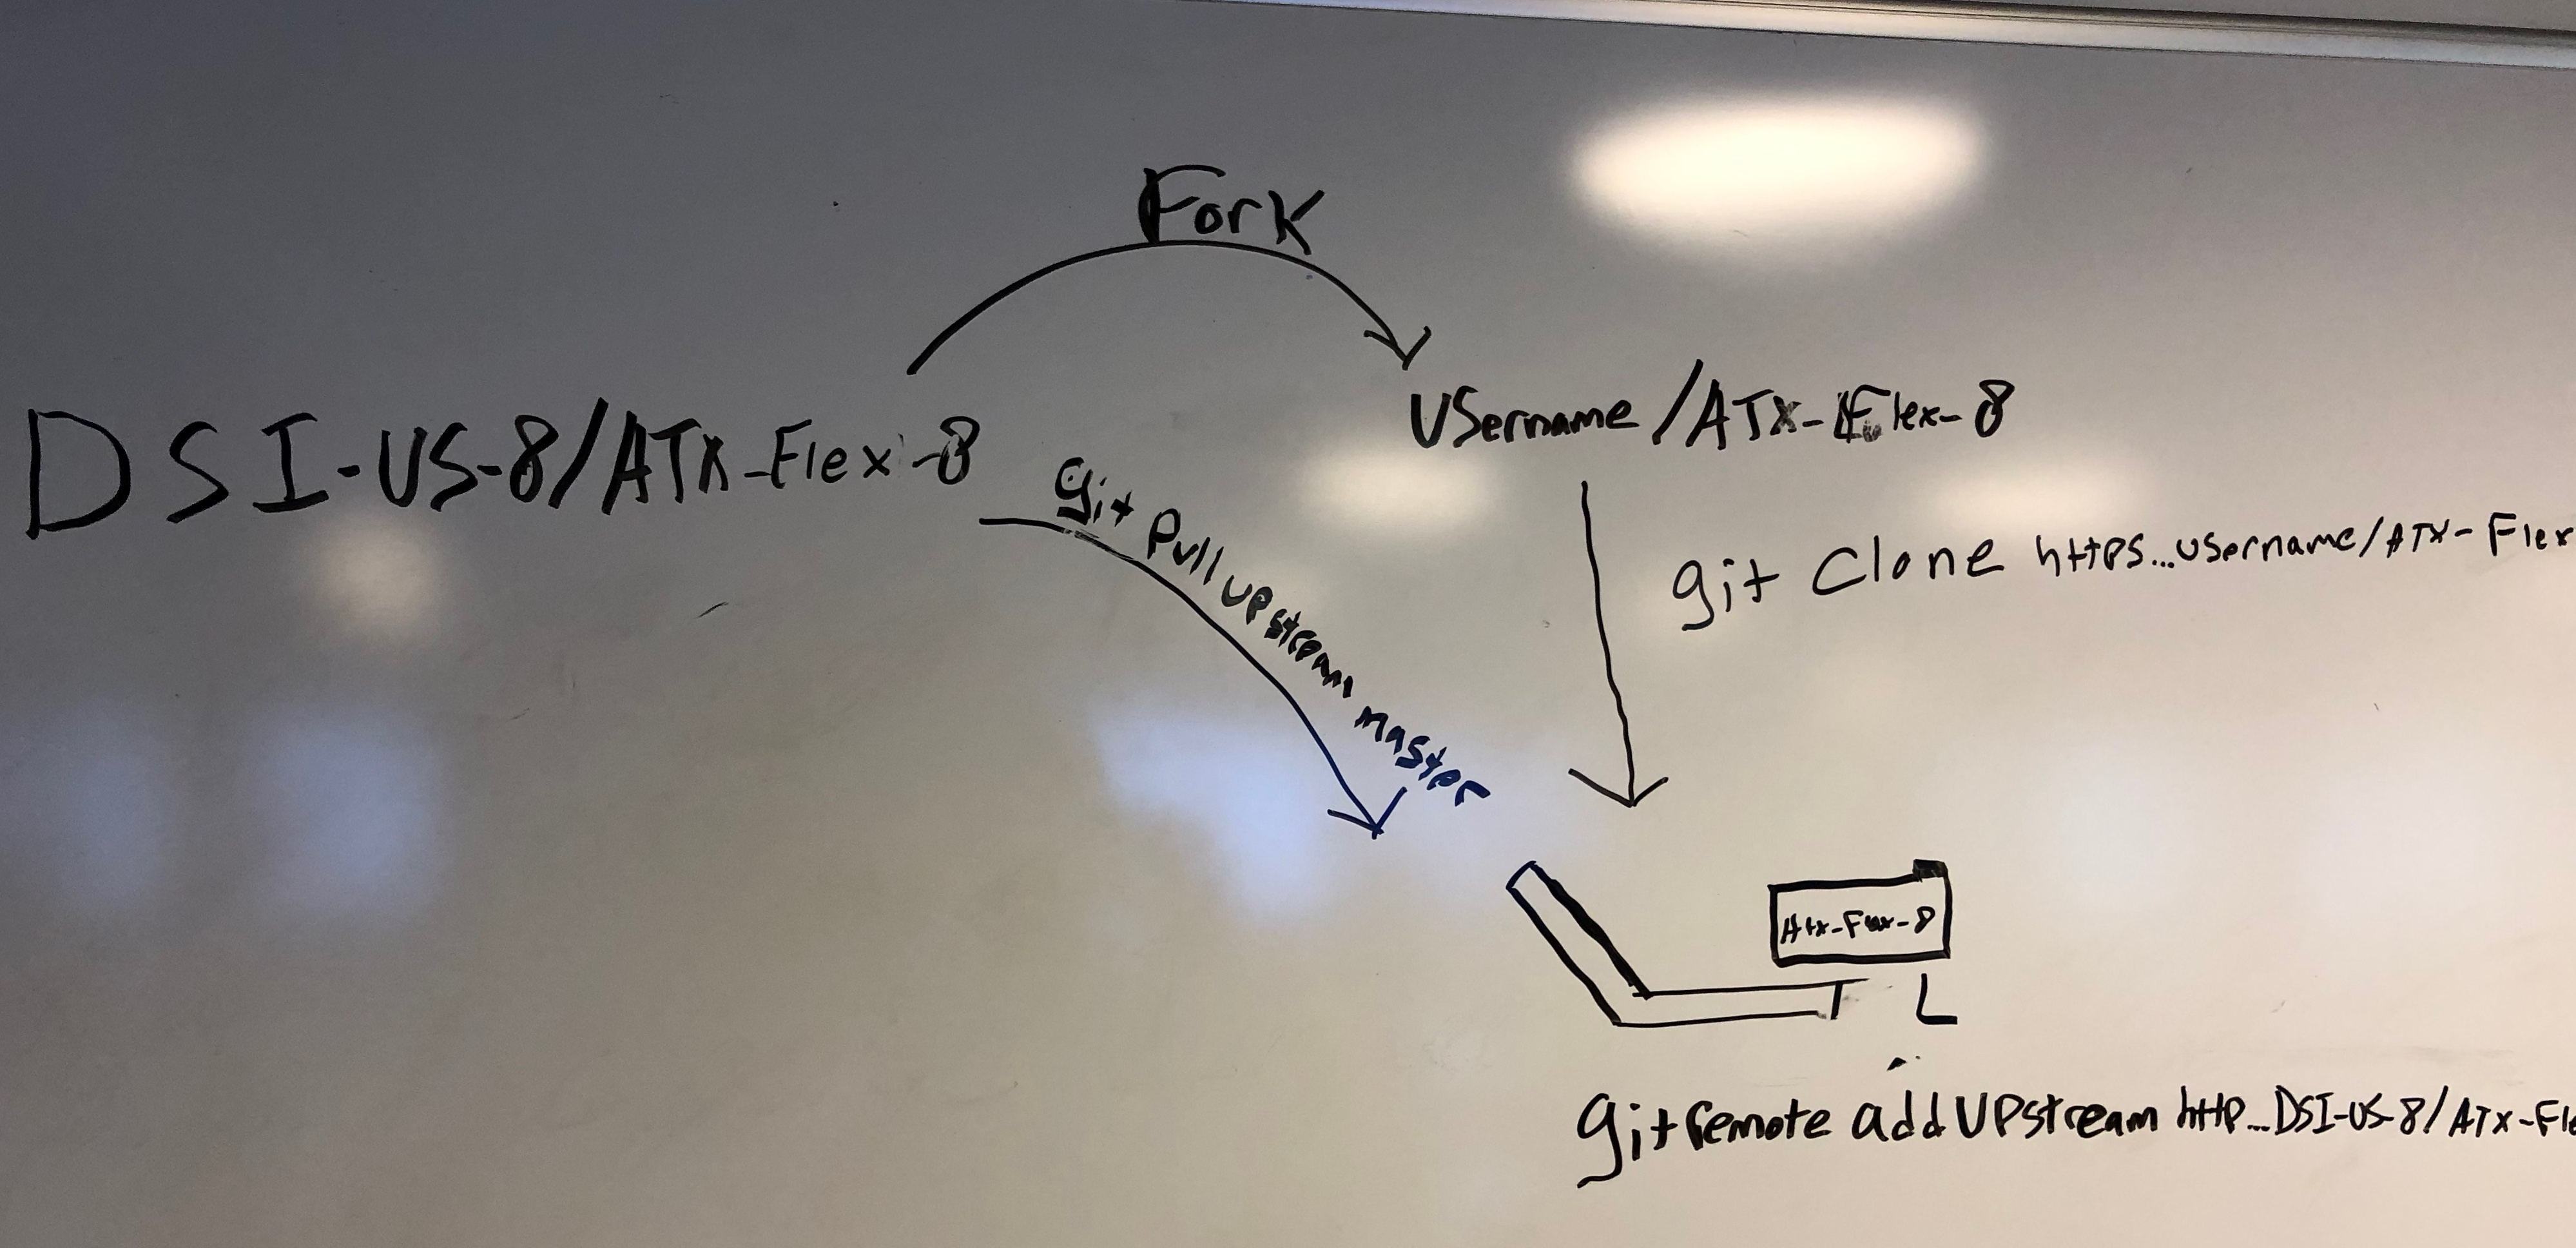 Fork
DSI-US-8/ATX-Flex-8
Username/ATX-Flex-8
git Pull upstream master
git Clone https...username/ATX-Flex
Atx-Flex-8
git remote add UPstream http...DSI-US-8/ATX-Fle